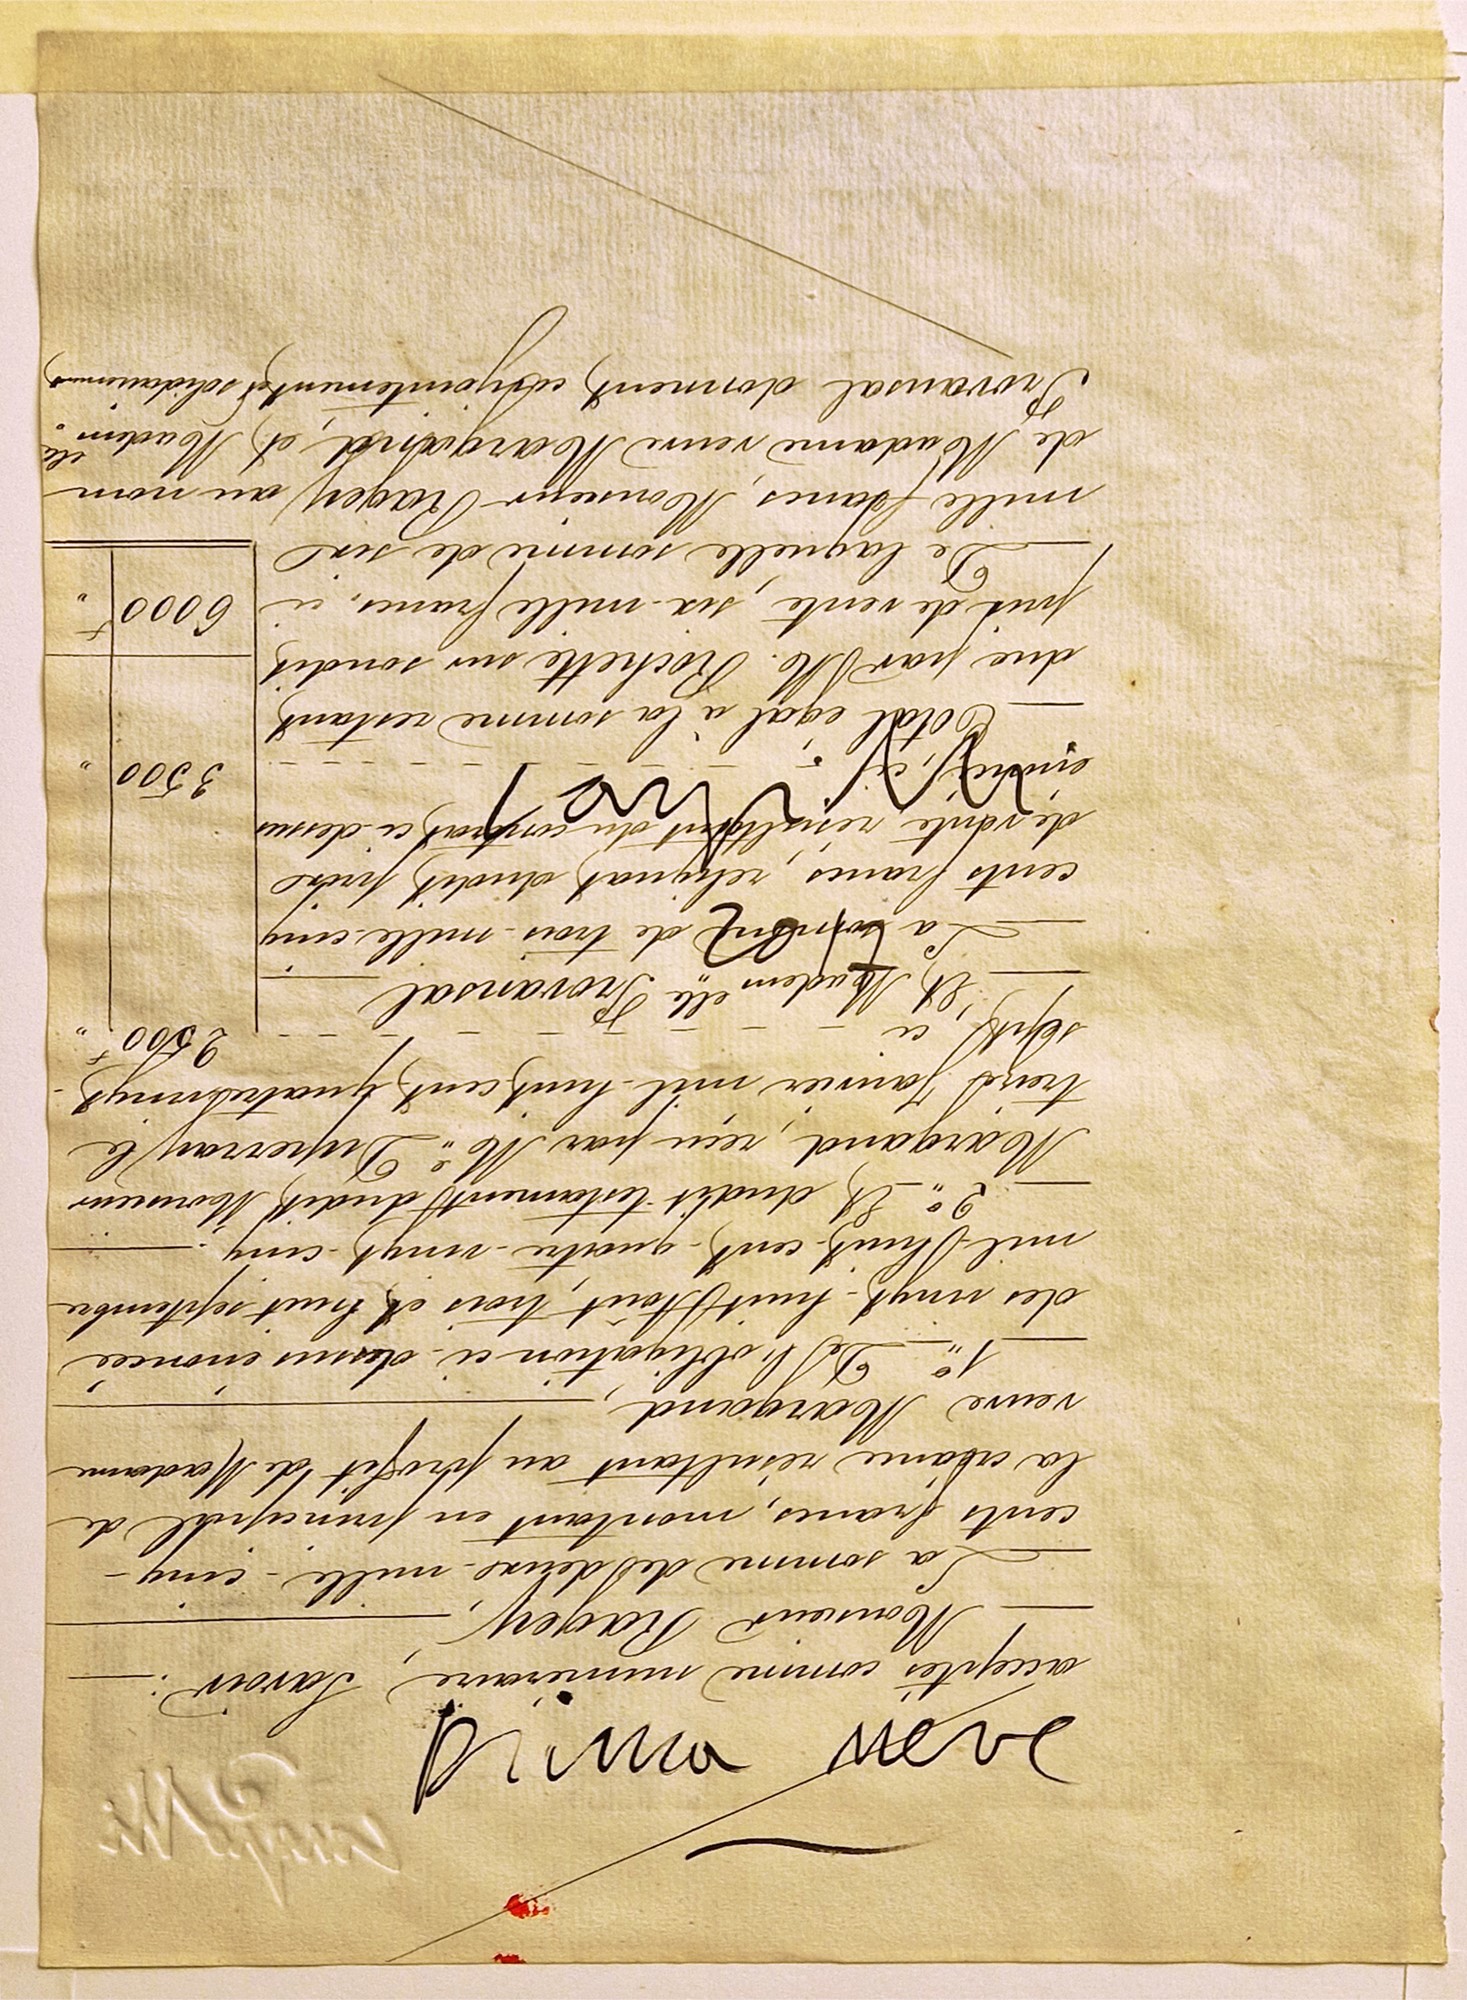 prima neve
acceptés comme numéraire, savoir :
Monsieur Ragey,
La somme de deux-mille-cinq-
cents francs, montant en principal de
la créance résultant au profit de Madame
veuve Margand,
1° De l'obligation ci-dessus énoncée
des vingt-huit Août, trois et huit septembre
mil-huit-cent-quatre-vingt-cinq.
2° Et dudit testament dudit Monsieur
Margand, reçu par Me Duperray le
treize Janvier mil-huit-cent-quatre-vingt-
sept, ci 2500 f "
Et Madem elle Provansal
La somme de trois-mille-cinq
cents francs, reliquat dudit prix
de vente résultant du contrat ci-dessus
énoncé, ci 3500 "
Total égal à la somme restant
due par M. Rochette sur sondit
prix de vente, six-mille francs, ci 6000 f "
De laquelle somme de six
mille francs, Monsieur Ragey au nom
de Madame veuve Margand, et Madem.elle
Provansal donnent conjointement et solidairement